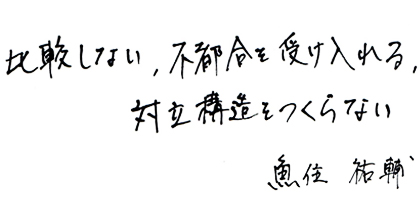 比較しない,不都合を受け入れる,
対立構造をつくらない
魚住 祐輔